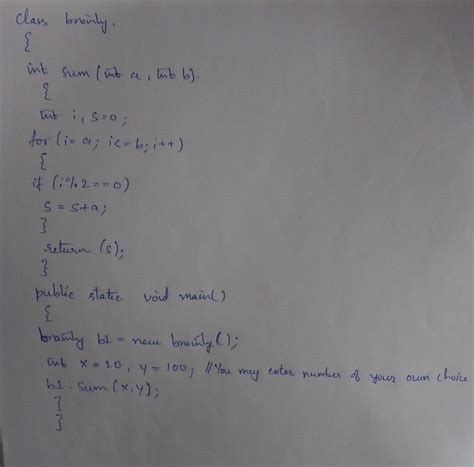 class brainly.
{
int sum (int a, int b).
{
int i, s=0;
for (i= a; i<= b; i++)
{
if (i%2==0)
s = s+a;
}
return (s);
}
public static void main()
{
brainly b1 = new brainly();
int x = 10, y = 100; //You may enter number of your own choice
b1. sum (x,y);
}
}